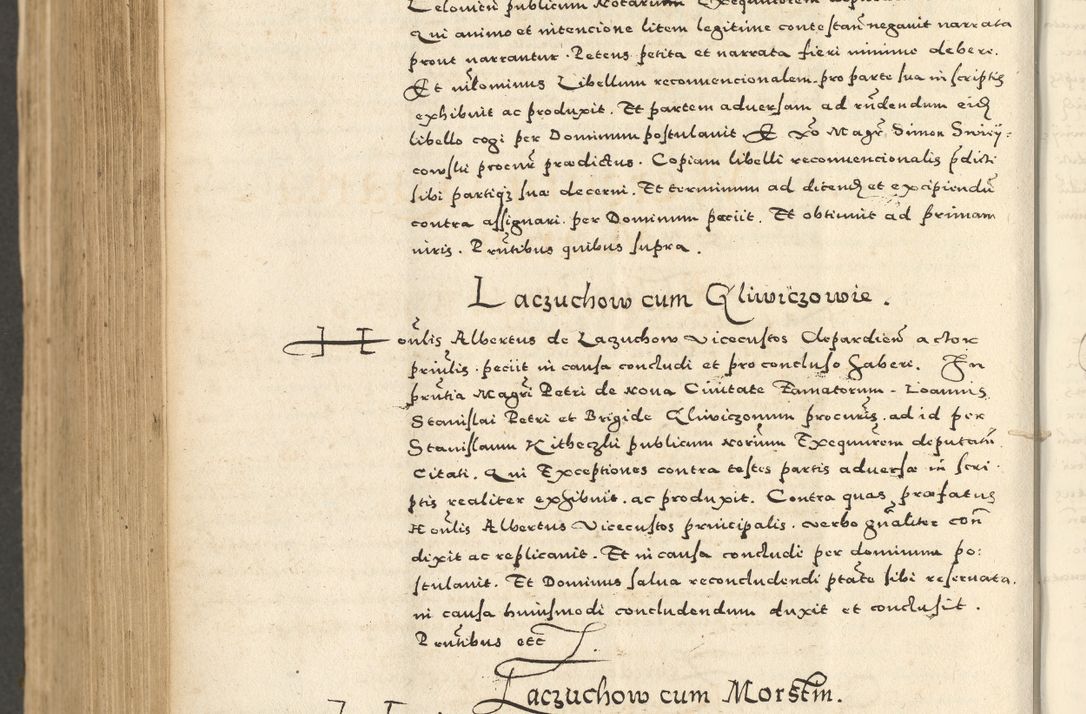 Lelovien publicum Notarium Exequutorem
Qui animo et intencione litem legitime contestan̄ negavit narrata
prout narrantur. Petens petita et narrata fieri minime debere.
Et nil̃ominus Libellum reconvencionalem pro parte sua in scriptis
exhibuit ac produxit. Et partem adversam ad rn̄dendum eid̄
libello cogi per Dominum postulavit. Et x̄o Magr̄ Simon Swiɏ:
cowski procur̄ prædictus. Copiam libelli reconvencionalis p̄dicti
sibi partiqꝫ suæ decerni. Et terminum ad dicend̄ et excipiendū
contra assignari per Dominum peciit. Et obtinuit ad primam
iuris. Prn̄tibus quibus supra.
Laczuchow cum Gliwiczowie.
Honl̄is Albertus de Laczuchow Vicecustos Clepardien̄ actor
prin̄lis. peciit in causa concludi et pro concluso haberi. In
prn̄tia Magr̄i Petri de Nova Civitate Famatorum Ioannis
Stanislai Petri et Brigide Gliwiczonum procur̄is. ad id per
Stanislaum Kitheczki publicum Nor̄ium Exequur̄em deputatū
Citati. Qui Exceptiones contra testes partis adversæ in scri
ptis realiter exhibuit. ac produxit. Contra quas præfatus
Honl̄is Albertus Vicecustos principalis. verbo gn̄aliter con̄
dixit ac replicavit. Et in causa concludi per dominum po:
stulavit. Et Dominus salva reconcludendi p̄tāte sibi reservata
in causa huiusmodi concludendum duxit et conclusit.
Prn̄tibus etc
Laczuchow cum Morstin.